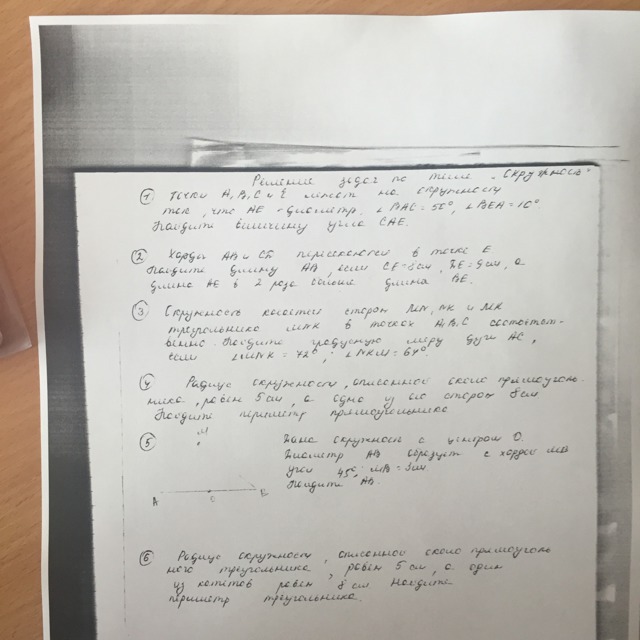 Решение задач по теме „Окружность"
① Точки А, В, С и Е лежат на окружности
так, что АЕ - диаметр. ∠ВАС = 50°, ∠ВЕА = 10°
Найдите величину угла САЕ.
② Хорды АВ и СD пересекаются в точке Е
Найдите длину АВ, если СЕ = 8см, DЕ = 9см, а
длина АЕ в 2 раза больше длина ВЕ.
③ Окружность касается сторон MN, NK и MK
треугольника MNK в точках А, В, С соответст-
венно. Найдите градусную меру дуги АС,
если ∠MNK = 72°, ∠NKM = 64°.
④ Радиус окружности, описанной около прямоуголь-
ника, равен 5 см, а одна из его сторон 8 см
Найдите периметр прямоугольника
⑤ Дана окружность с центром О.
Диаметр АВ образует с хордой МВ
угол 45°, МВ = 3см
Найдите АВ.
М
А О В
⑥ Радиус окружности, описанной около прямоуголь
ного треугольника, равен 5 см, а один
из катетов равен 8 см. Найдите
периметр треугольника.